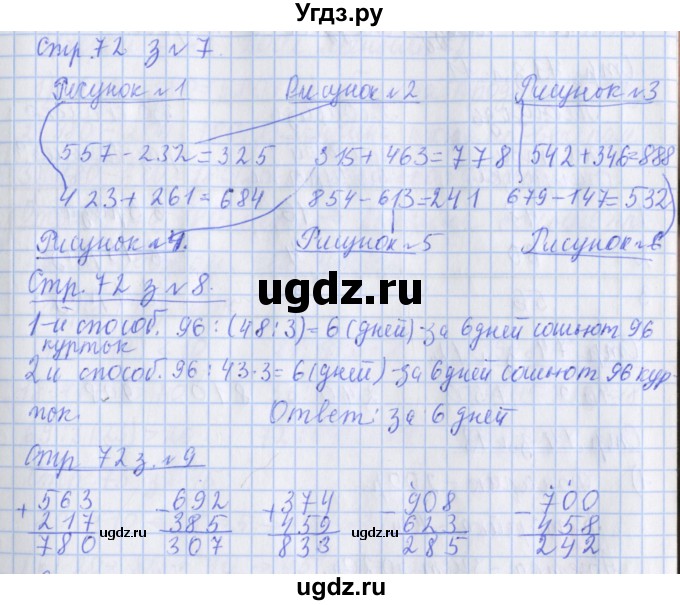 Угдз.ру
Стр. 72 з №7.
Рисунок №1 Рисунок №2 Рисунок №3
557-232=325 315+463=778 542+346=888
423+261=684 854-613=241 679-147=532
Рисунок №4. Рисунок №5 Рисунок №6
Стр. 72 з №8.
1-й способ. 96:(48:3)=6(дней)-за 6 дней сошьют 96
курток
2й способ. 96:43·3=6(дней)-за 6 дней сошьют 96 кур-
ток.
Ответ: за 6 дней
Стр 72 з. №9
+563 -692 +374 -908 -700
217 385 459 623 458
780 307 833 285 242
ugdz.ru
ugdz.ru
ugdz.ru
ugdz.ru
ugdz.ru